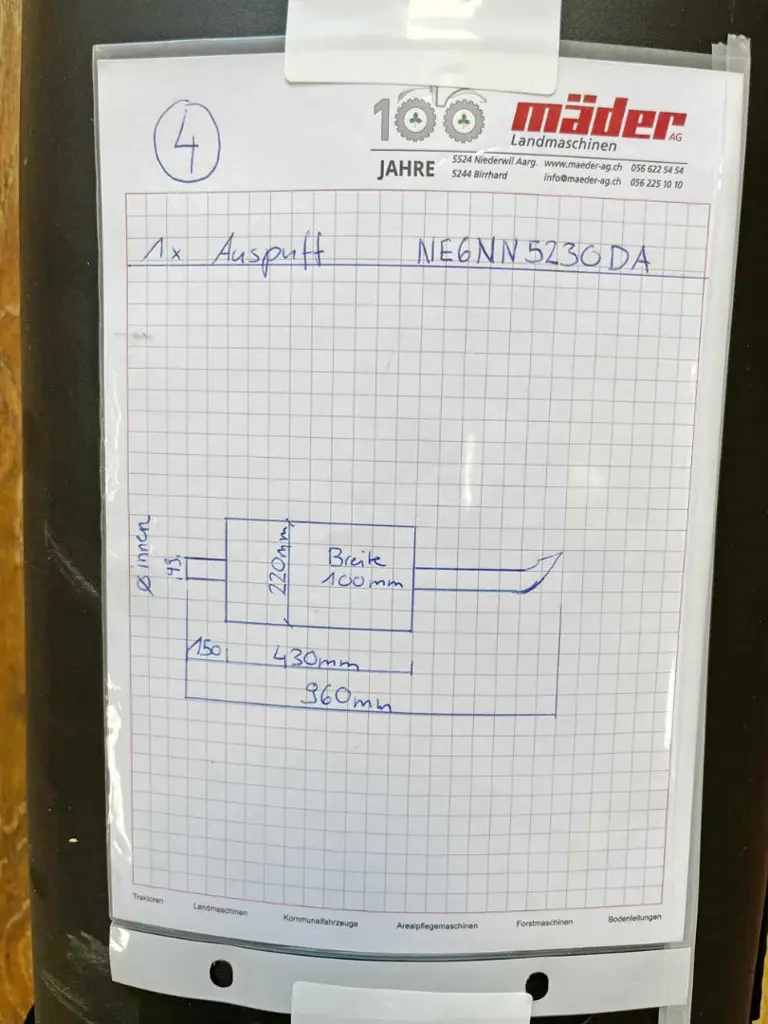 4
100 mäder AG
Landmaschinen
JAHRE
5524 Niederwil Aarg. www.maeder-ag.ch 056 622 54 54
5244 Birrhard info@maeder-ag.ch 056 225 10 10
1x Auspuff NE6NN5230DA
Ø innen
49
220mm
Breite
100mm
150 430mm
960mm
Traktoren Landmaschinen Kommunalfahrzeuge Arealpflegemaschinen Forstmaschinen Bodenleitungen